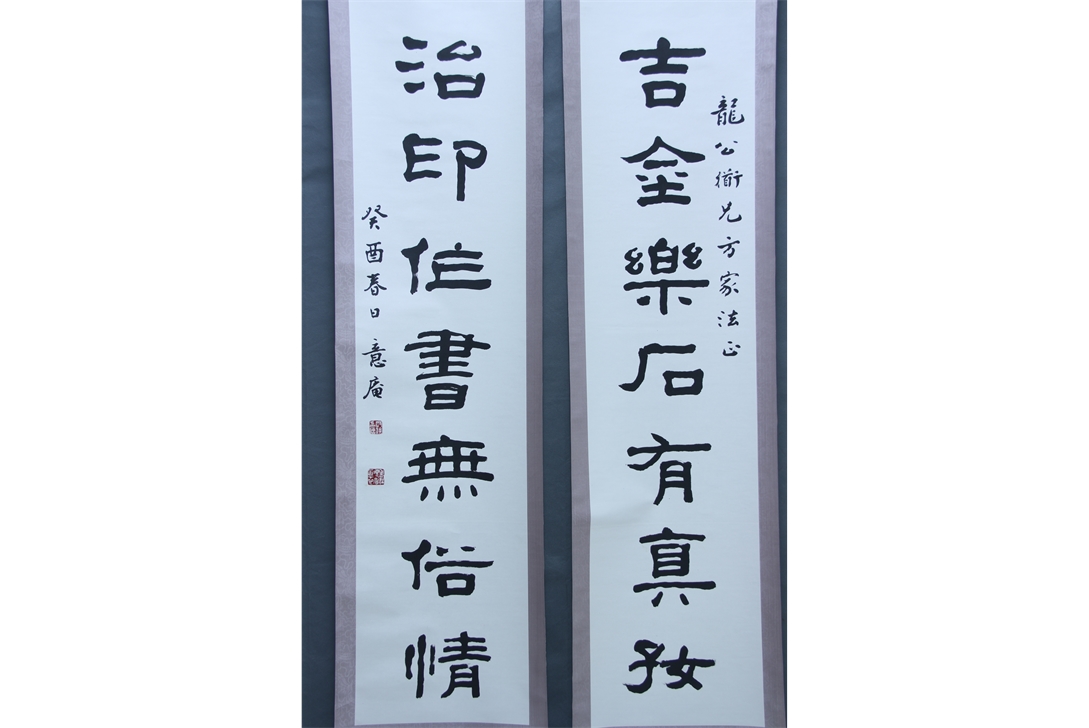 龍公衜兄方家法正
吉金樂石有真好
治印作書無俗情
癸酉春日 意庵